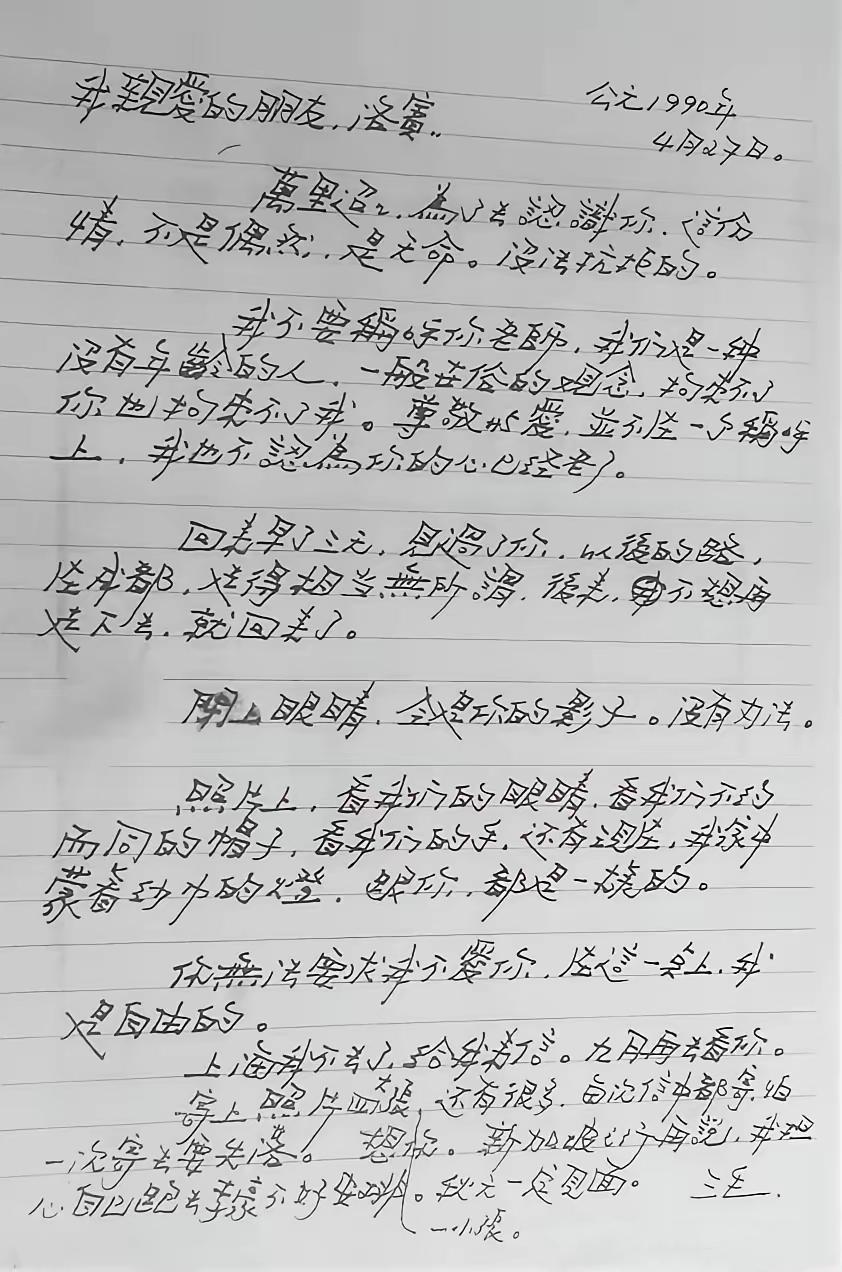 我親愛的朋友，洛賓：
公元1990年
4月27日。
萬里迢迢，為了去認識你，這份
情，不是偶然，是天命。沒法抗拒的。
我不要稱呼你老師，我们是一种
沒有年齡的人，一般世俗的观念，拘束不了
你也拘束不了我。尊敬与愛，並不在一个稱呼
上，我也不認為你的心已经老了。
回來早了三天，見過了你，以後的路，
在成都，走得相当無所謂，後來，不想再
走下去，就回来了。
閉上眼睛，全是你的影子。沒有办法。
照片上，看我们的眼睛，看我们不约
而同的帽子，看我们的手，还有現在，我家中
蒙着纱巾的燈，跟你，都是一樣的。
你無法要求我不愛你，在這一点上，我
是自由的。
上海我不去了，给我来信。九月再去看你。
寄上照片四大張，还有很多，每次信中都寄，怕
一小張。
一次寄去要失落。想你。新加坡之行再說，我担
心自己跑去李豪不好安排。秋天一定見面。
三毛